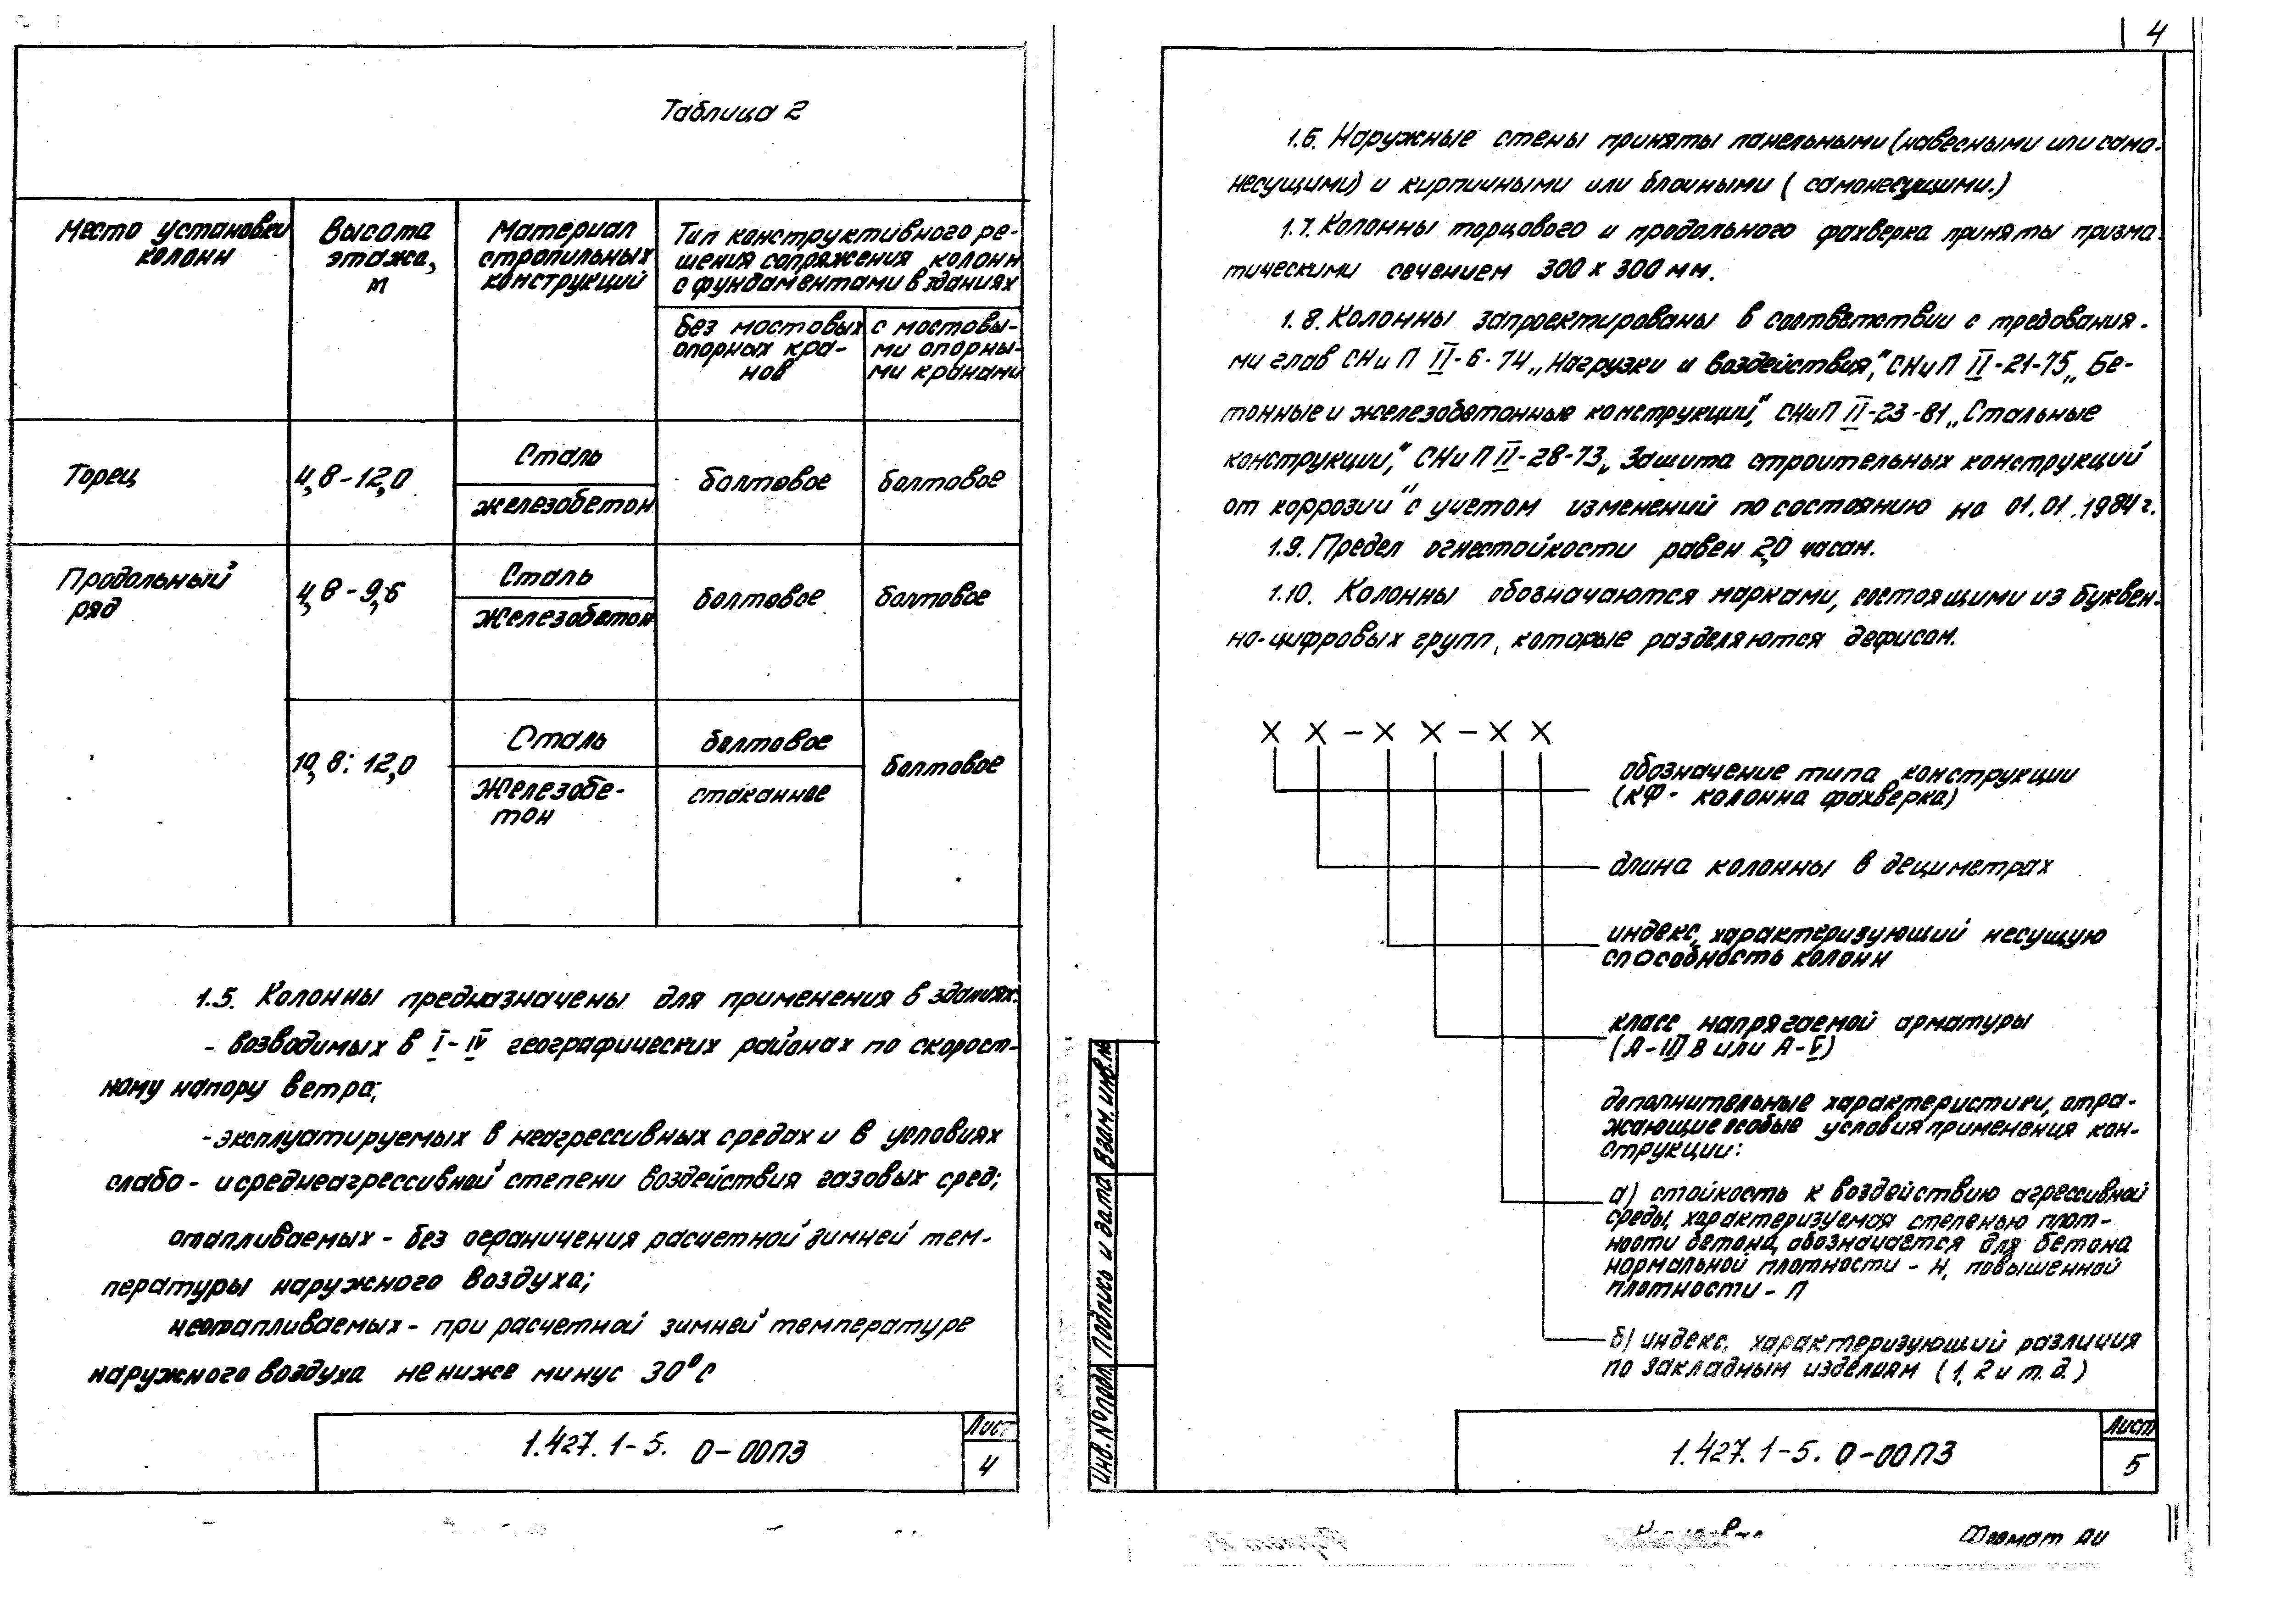 Таблица 2
Место установки колонн
Высота этажа, м
Материал стропильных конструкций
Тип конструктивного ре-
шения сопряжения колонн
с фундаментами в зданиях
без мостовых опорных кра-
нов
с мостовы-
ми опорны-
ми кранами
Торец
4,8-12,0
Сталь
железобетон
болтовое
болтовое
Продольный ряд
4,8-9,6
Сталь
Железобетон
болтовое
болтовое
10,8; 12,0
Сталь
болтовое
болтовое
Железобе-
тон
стаканное
1.5. Колонны предназначены для применения в зданиях:
- возводимых в I-IV географических районах по скорост-
ному напору ветра;
- эксплуатируемых в неагрессивных средах и в условиях
слабо- и среднеагрессивной степени воздействия газовых сред;
отапливаемых - без ограничения расчетной зимней тем-
пературы наружного воздуха;
неотапливаемых - при расчетной зимней температуре
наружного воздуха не ниже минус 30°С
1.427.1-5. 0-00ПЗ
Лист
4
4
1.6. Наружные стены приняты панельными (навесными или само-
несущими) и кирпичными или блочными ( самонесущими.)
1.7. Колонны торцового и продольного фахверка приняты призма-
тическими сечением 300 х 300 мм.
1.8. Колонны запроектированы в соответствии с требования-
ми глав СНиП II-6-74 „Нагрузки и воздействия", СНиП II-21-75 „Бе-
тонные и железобетонные конструкции", СНиП II-23-81 „Стальные
конструкции", СНиП II-28-73 „Защита строительных конструкций
от коррозии" с учетом изменений по состоянию на 01.01.1984 г.
1.9. Предел огнестойкости равен 2,0 часам.
1.10. Колонны обозначаются марками, состоящими из буквен-
но-цифровых групп, которые разделяются дефисом.
Х Х - Х Х - Х Х
обозначение типа конструкции
(КФ - колонна фахверка)
длина колонны в дециметрах
индекс, характеризующий несущую
способность колонн
класс напрягаемой арматуры
(А-IIIв или А-V)
дополнительные характеристики, отра-
жающие особые условия применения кон-
струкции:
а) стойкость к воздействию агрессивной
среды, характеризуемая степенью плот-
ности бетона, обозначается для бетона
нормальной плотности - Н, повышенной
плотности - П
б) индекс, характеризующий различия
по закладным изделиям ( 1, 2 и т.д.)
Инв. № подл. Подпись и дата Взам. инв. №
1.427.1-5. 0-00ПЗ
Лист
5
Формат А4